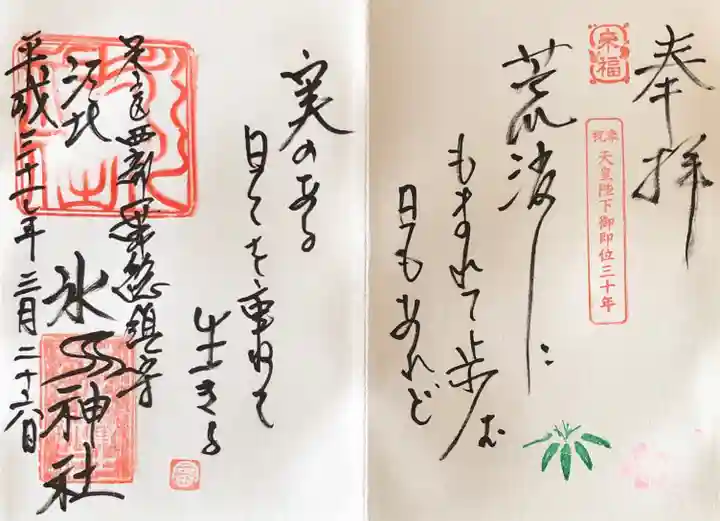 奉拝
来福
奉祝
天皇陛下御即位三十年
荒波に
もまれて歩む
日もあれど
実のある
日々を重ねて
生きる
足立区西部一帯総鎮守
江北
氷川神社
平成三十一年三月二十六日